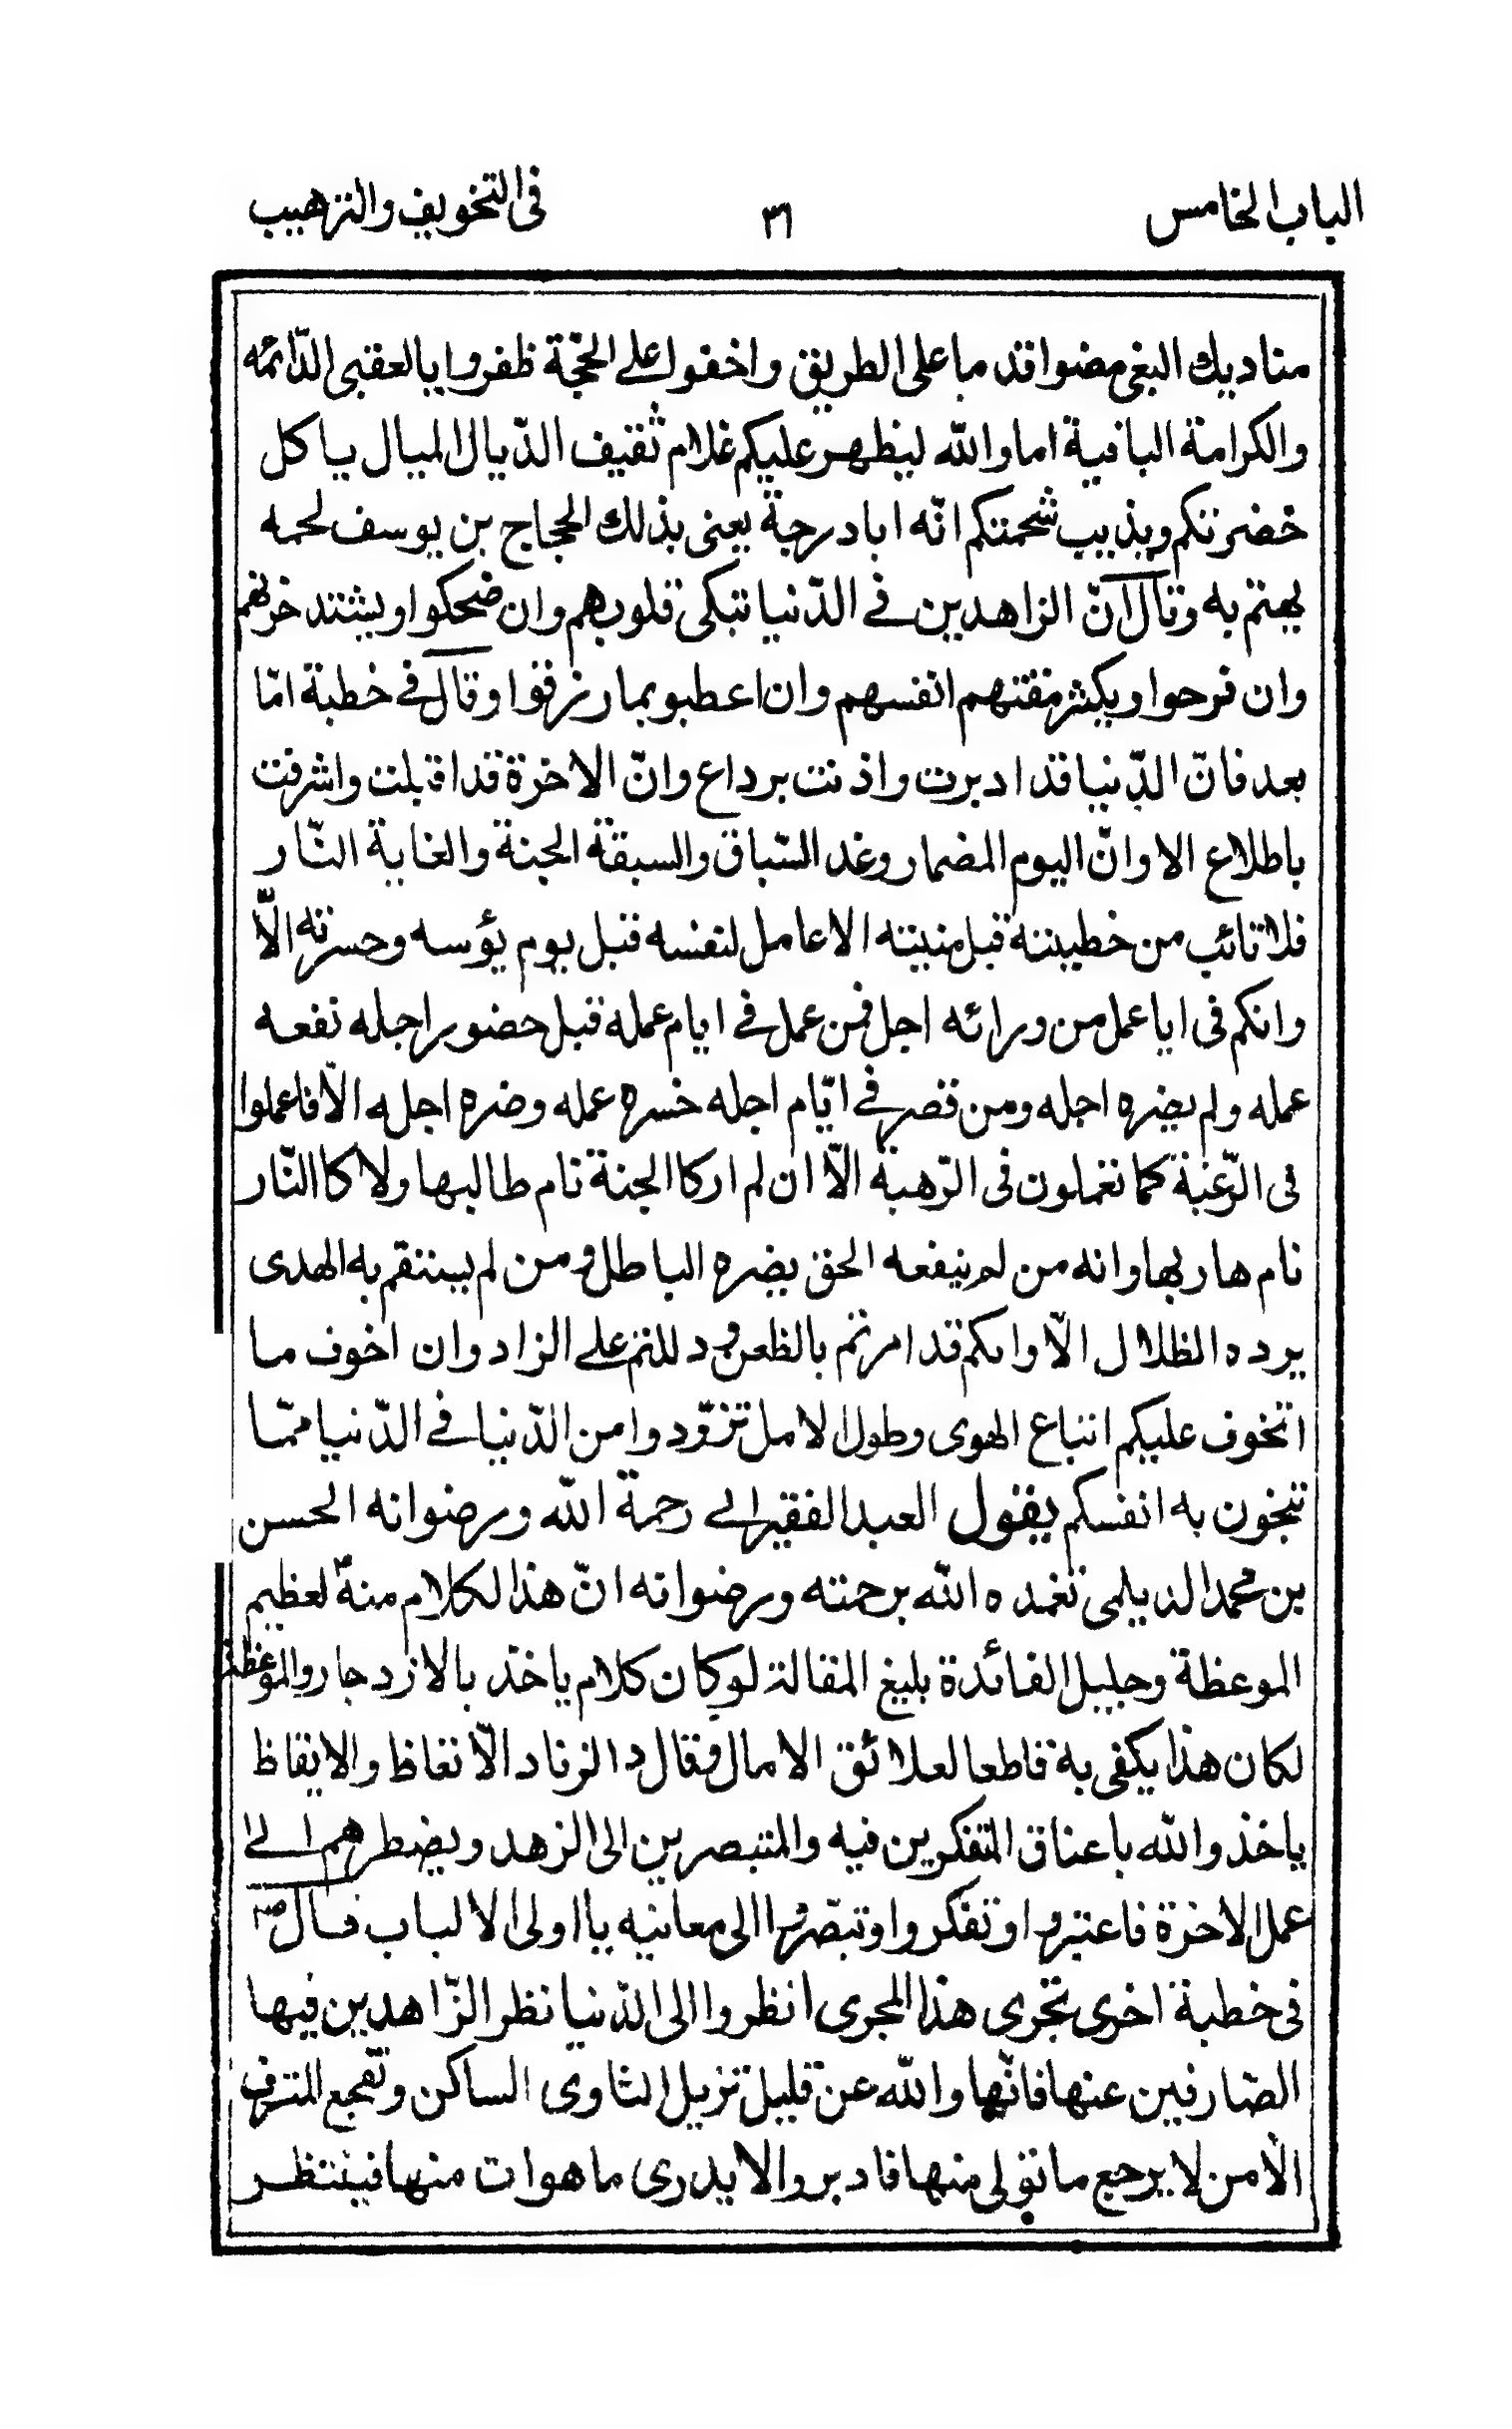 الباب الخامس
٣١
فى التخويف والترهيب
مناديك البغى مضوا قدما على الطريق واخفوا على الحجة ظفروا بالعقبى الدّائمه
والكرامة الباقية اما والله ليظهر عليكم غلام ثقيف الذيال الميال ياكل
خضرتكم ويذيب شحمتكم انّه ابادرجة يعنى بذلك الحجاج بن يوسف لحمه
يهتم به وقال انّ الزاهدين فى الدّنيا تبكى قلوبهم وان ضحكوا ويشتد حزنهم
وان فرحوا ويكثر مقتهم انفسهم وان اعطبو بما رزقوا وقال فى خطبة امّا
بعد فانّ الدّنيا قد ادبرت واذنت برداع وانّ الاخرة قد اقبلت واشرفت
باطلاع الا وانّ اليوم المضمار وغد السّباق والسبقة الجنة والغاية النّار
فلا تائب من خطيئته قبل منيته الا عامل لنفسه قبل يوم يؤسه وحسرته الّا
وانكم فى ايا عمل من ورائه اجل فمن عمل فى ايام عمله قبل حضور اجله نفعه
عمله ولم يضره اجله ومن قصر فى ايّام اجله خسره عمله وضره اجله الّا فاعملوا
فى الرّغبة كما تعملون فى الرّهبة الّا ان لم ار كا الجنة نام طالبها ولا كا النّار
نام هاربها وانه من لم ينفعه الحق يضره الباطل ومن لم يستقم به الهدى
يرده الظلال الّا وانكم قد امرتم بالظعن ودللتم على الزاد وان اخوف ما
اتخوف عليكم اتباع الهوى وطول الامل تزوّدوا من الدّنيا فى الدّنيا ممّا
تنجون به انفسكم يقول العبد الفقير الى رحمة الله ورضوانه الحسن
بن محمد الديلمى تغمده الله برحمته ورضوانه انّ هذا لكلام منه لعظيم
الموعظة وجليل الفائدة بليغ المقالة لو كان كلام ياخذ بالازدجار والموعظة
لكان هذا يكفى به قاطعا لعلائق الامال وقال د الزناد الّا تعاظ والايقاظ
ياخذ والله باعناق المتفكرين فيه والمتبصرين الى الزهد ويضطرهم الى
عمل الاخرة فاعتبروا وتفكروا وتبصّروا الى معانيه يا اولى الالباب قال
فى خطبة اخرى تجرى هذا المجرى انظروا الى الدّنيا نظر الزّاهدين فيها
الصّارفين عنها فانّها والله عن قليل تزيل الثاوى الساكن وتفجع المترف
الأمن لا يرجع ما تولى منها فادبر والا يدرى ما هوات منها فينتظر